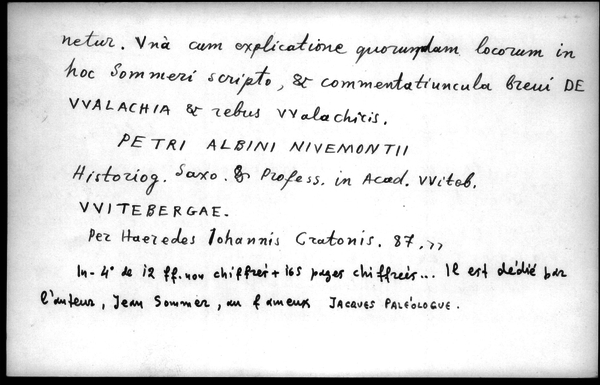 netur. Vnà cum explicatione quorumdam locorum in
hoc Sommeri scripto, & commentatiuncula breui DE
VVALACHIA & rebus VValachicis.
PETRI ALBINI NIVEMONTII
Historiog. Saxo. & Profess. in Acad. VVitob.
VVITEBERGAE.
Per Haeredes Iohannis Cratonis. 87. ,,
In-4° de 12 ff. non chiffrés + 165 pages chiffrées... Il est dédié par
l'auteur, Jean Sommer, au fameux JACQUES PALÉOLOGUE.